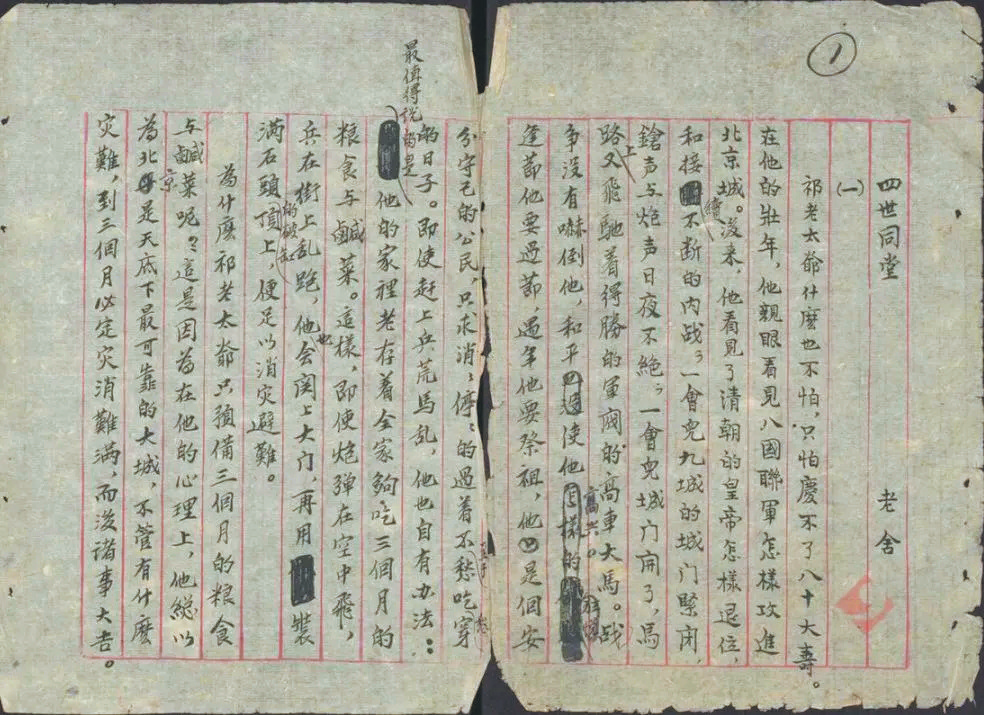 1
四世同堂 老舍
(一)
祁老太爺什麽也不怕，只怕慶不了八十大壽。
在他的壯年，他親眼看見八國聯軍怎樣攻進
北京城。後来，他看見了清朝的皇帝怎樣退位，
和接續不断的内战；一會兒九城的城门緊闭，
鎗声与炮声日夜不絶；一會兒城门開了，馬
路上又飛馳着得勝的軍閥的高車大馬。战
争没有嚇倒他，和平使他高兴。
逢節他要過節，過年他要祭祖，他是個安
分守己的公民，只求消消停停的過着不愁吃穿
的日子。即使赶上兵荒馬乱，他也自有办法：
最值得说的是
他的家裡老存着全家夠吃三個月的
粮食与鹹菜。這樣，即使炮弹在空中飛，
兵在街上乱跑，他也会関上大门，再用裝
满石頭的破缸頂上，便足以消灾避難。
為什麽祁老太爺只預備三個月的粮食
与鹹菜呢？這是因為在他的心理上，他総以
為北京是天底下最可靠的大城，不管有什麽
灾難，到三個月必定灾消難满，而後诸事大吉。